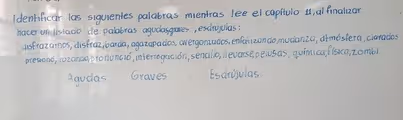 Identificar las siguientes palabras mientras lee el capítulo 11, al finalizar
hace un listado de palabras agudas, graves, esdrújulas:
disfrazarnos, disfraz, banda, agazapados, avergonzados, enfatizando, mudanza, atmósfera, clonados
presiono, razonas, pronunció, interrogación, sencillo, llevarse, pelusas, química, físico, zombi
Agudas Graves Esdrújulas.